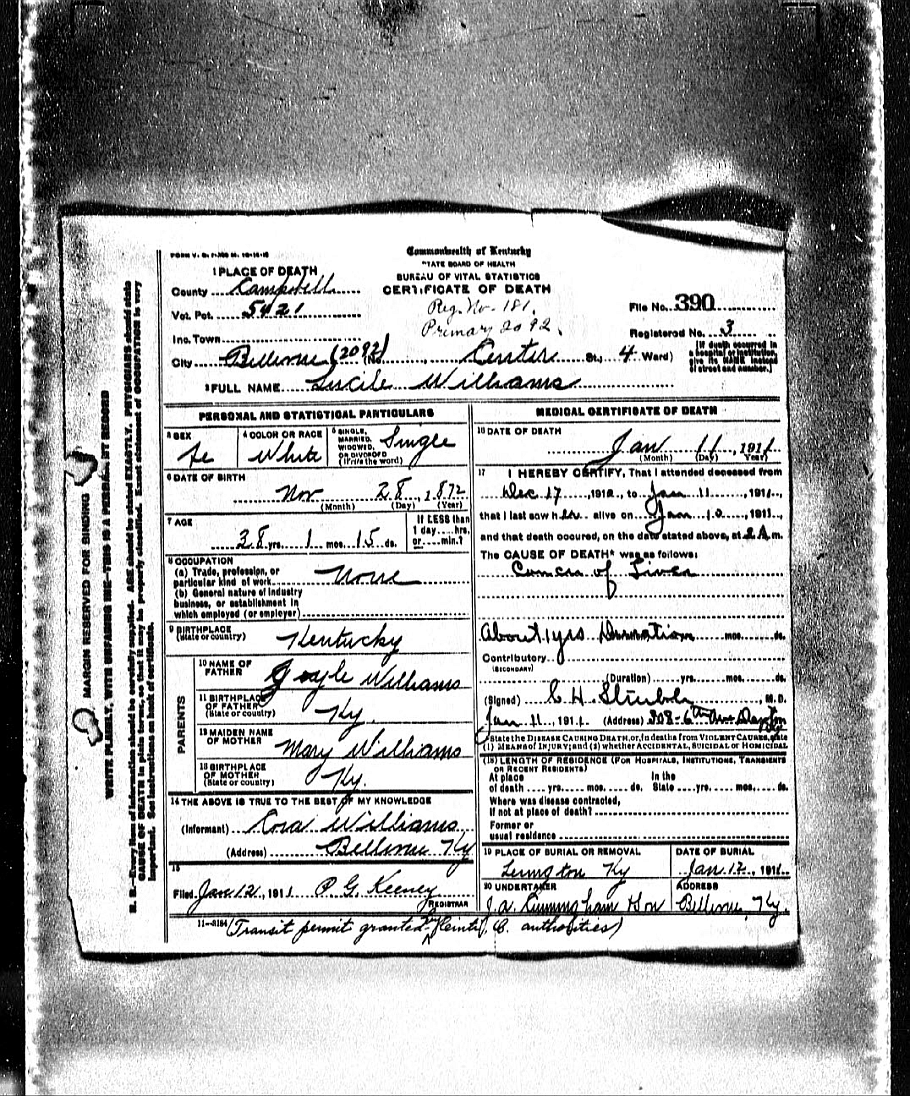 Commonwealth of Kentucky
STATE BOARD OF HEALTH
BUREAU OF VITAL STATISTICS
CERTIFICATE OF DEATH
1 PLACE OF DEATH
County Campbell
Vot. Pct. 5421
Reg. No. 181.
Primary 2092.
File No. 390
Registered No. 3
Inc. Town
City Bellevue (2092) (No. Center St., 4 Ward)
(If death occurred in a hospital or institution, give its NAME instead of street and number.)
2 FULL NAME Lucile Williams
PERSONAL AND STATISTICAL PARTICULARS
3 SEX Fe
4 COLOR OR RACE White
5 SINGLE, MARRIED, WIDOWED, OR DIVORCED (Write the word) Single
6 DATE OF BIRTH
Nov 28, 1872
(Month) (Day) (Year)
7 AGE
38 yrs. 1 mos. 15 ds.
If LESS than
1 day....hrs.
or....min.?
8 OCCUPATION
(a) Trade, profession, or
particular kind of work None
(b) General nature of industry
business, or establishment in
which employed (or employer)
9 BIRTHPLACE
(State or country) Kentucky
PARENTS
10 NAME OF
FATHER Gayle Williams
11 BIRTHPLACE
OF FATHER
(State or country) Ky.
12 MAIDEN NAME
OF MOTHER Mary Williams
13 BIRTHPLACE
OF MOTHER
(State or country) Ky.
14 THE ABOVE IS TRUE TO THE BEST OF MY KNOWLEDGE
(Informant) Cora Williams
(Address) Bellevue Ky
15
Filed Jan 12, 1911 P. G. Keeney
REGISTRAR
MEDICAL CERTIFICATE OF DEATH
16 DATE OF DEATH
Jan 11, 1911
(Month) (Day) (Year)
17 I HEREBY CERTIFY, That I attended deceased from
Dec 17, 1910, to Jan 11, 1911,
that I last saw her alive on Jan 10, 1911,
and that death occured, on the date stated above, at 2 A m.
The CAUSE OF DEATH* was as follows:
Cancer of Liver
About 1 yrs Duration mos. ds.
Contributory
(SECONDARY)
(Duration) yrs. mos. ds.
(Signed) C. H. M.D.
Jan 11, 1911 (Address) 308-6th Ave Dayton Ky
*State the DISEASE CAUSING DEATH, or, in deaths from VIOLENT CAUSES, state
(1) MEANS OF INJURY; and (2) whether ACCIDENTAL, SUICIDAL or HOMICIDAL
(18) LENGTH OF RESIDENCE (FOR HOSPITALS, INSTITUTIONS, TRANSIENTS
OR RECENT RESIDENTS)
At place In the
of death .... yrs. .... mos. .... ds. State .... yrs. .... mos. .... ds.
Where was disease contracted,
if not at place of death?
Former or
usual residence
19 PLACE OF BURIAL OR REMOVAL
Lexington Ky
DATE OF BURIAL
Jan. 12, 1911
20 UNDERTAKER
J. A. Cunningham Son
ADDRESS
Bellevue, Ky.
11-3184 (Transit permit granted by C. authorities)
MARGIN RESERVED FOR BINDING
WRITE PLAINLY, WITH UNFADING INK—THIS IS A PERMANENT RECORD
N. B.—Every item of information should be carefully supplied. AGE should be stated EXACTLY. PHYSICIANS should state
CAUSE OF DEATH in plain terms, so that it may be properly classified. Exact statement of OCCUPATION is very
important. See instructions on back of certificate.